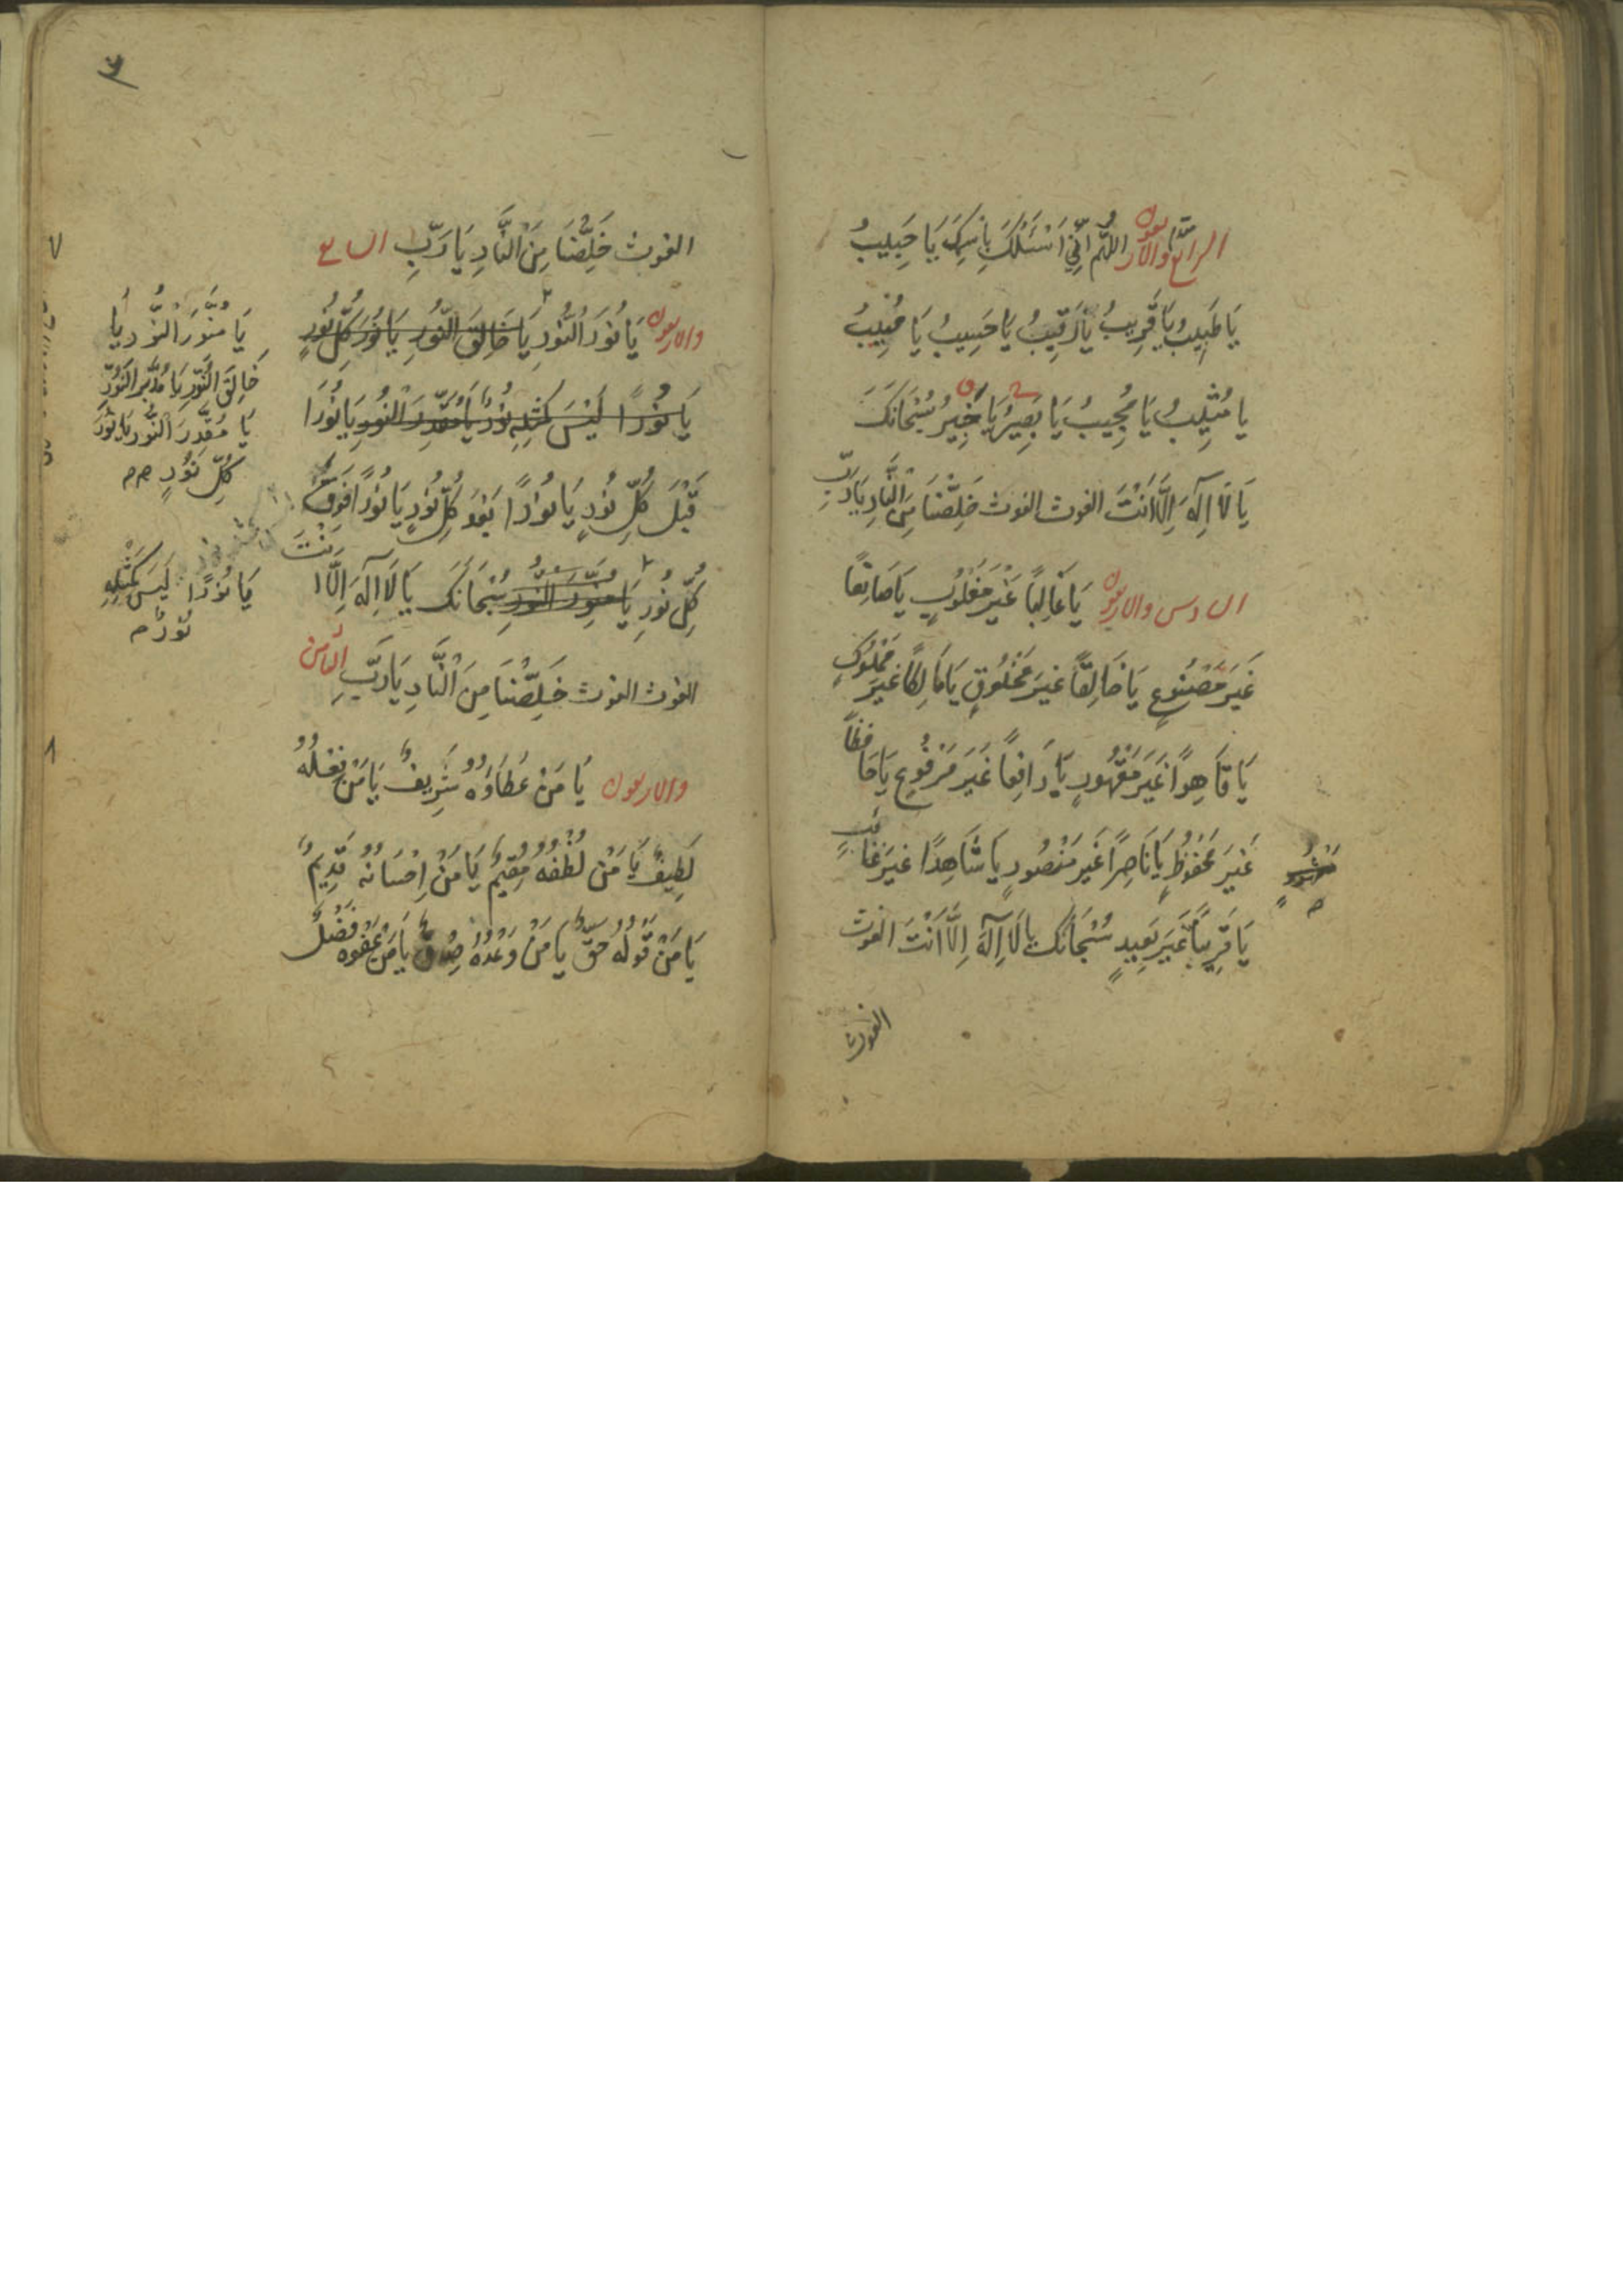 الرابع والاربعون اللّهُمَّ اِنّي اَسْئَلُكَ بِاسْمِكَ يَا حَبِيبُ
يَا طَبِيبُ يَا قَرِيبُ يَا رَقِيبُ يَا حَسِيبُ يَا مُهِيبُ
يا مُثِيبُ يَا مُجِيبُ يَا بَصِيرُ يَا خَبِيرُ سُبْحَانَكَ
يَا لَا اِلٰهَ اِلَّا اَنْتَ الغوث الغوث خَلِّصْنَا مِنَ النَّارِ يَارَبِّ
السادس والاربعون يَا غَالِبًا غَيْرَ مَغْلُوبٍ يَا صَانِعًا
غَيْرَ مَصْنُوعٍ يَا خَالِقًا غَيْرَ مَخْلُوقٍ يَا مَالِكًا غَيْرَ مَمْلُوكٍ
يَا قَاهِرًا غَيْرَ مَقْهُورٍ يَا رَافِعًا غَيْرَ مَرْفُوعٍ يَا حَافِظًا
غَيْرَ مَحْفُوظٍ يَا نَاصِرًا غَيْرَ مَنْصُورٍ يَا شَاهِدًا غَيْرَ غَائبٍ
يَا قَرِيبًا غَيْرَ بَعِيدٍ سُبْحَانَكَ يَا لَا اِلٰهَ اِلَّا اَنْتَ الغوث
الغوث
الغوث خَلِّصْنَا مِنَ النَّارِ يَا رَبِّ السابع
والاربعون يَا نُورَ النُّورِ يَا خَالِقَ النُّورِ يَا نُورَ كُلِّ نُورٍ
يَا نُورًا لَيْسَ كَمِثْلِهِ نُورٌ يَا مُقَدِّرَ النُّورِ يَا نُورًا
قَبْلَ كُلِّ نُورٍ يَا نُورًا بَعْدَ كُلِّ نُورٍ يَا نُورًا فَوْقَ
كُلِّ نُورٍ يَا مُنَوِّرَ النُّورِ سُبْحَانَكَ يَا لَا اِلٰهَ اِلَّا اَنْتَ
الغوث الغوث خَلِّصْنَا مِنَ النَّارِ يَا رَبِّ الثامن
والاربعون يَا مَنْ عَطَاؤُهُ شَرِيفٌ يَا مَنْ فِعْلُهُ
لَطِيفٌ يَا مَنْ لُطْفُهُ مُقِيمٌ يَا مَنْ اِحْسَانُهُ قَدِيمٌ
يَا مَنْ قَوْلُهُ حَقٌّ يَا مَنْ وَعْدُهُ صِدْقٌ يَا مَنْ عَفْوُهُ فَضْلٌ
يَا مُنَوِّرَ النُّورِ يَا
خَالِقَ النُّورِ يَا مُدَبِّرَ النُّورِ
يَا مُقَدِّرَ النُّورِ يَا نُورَ
كُلِّ نُورٍ
يَا نُورًا لَيْسَ كَمِثْلِهِ
نُورٌ
٧
٨